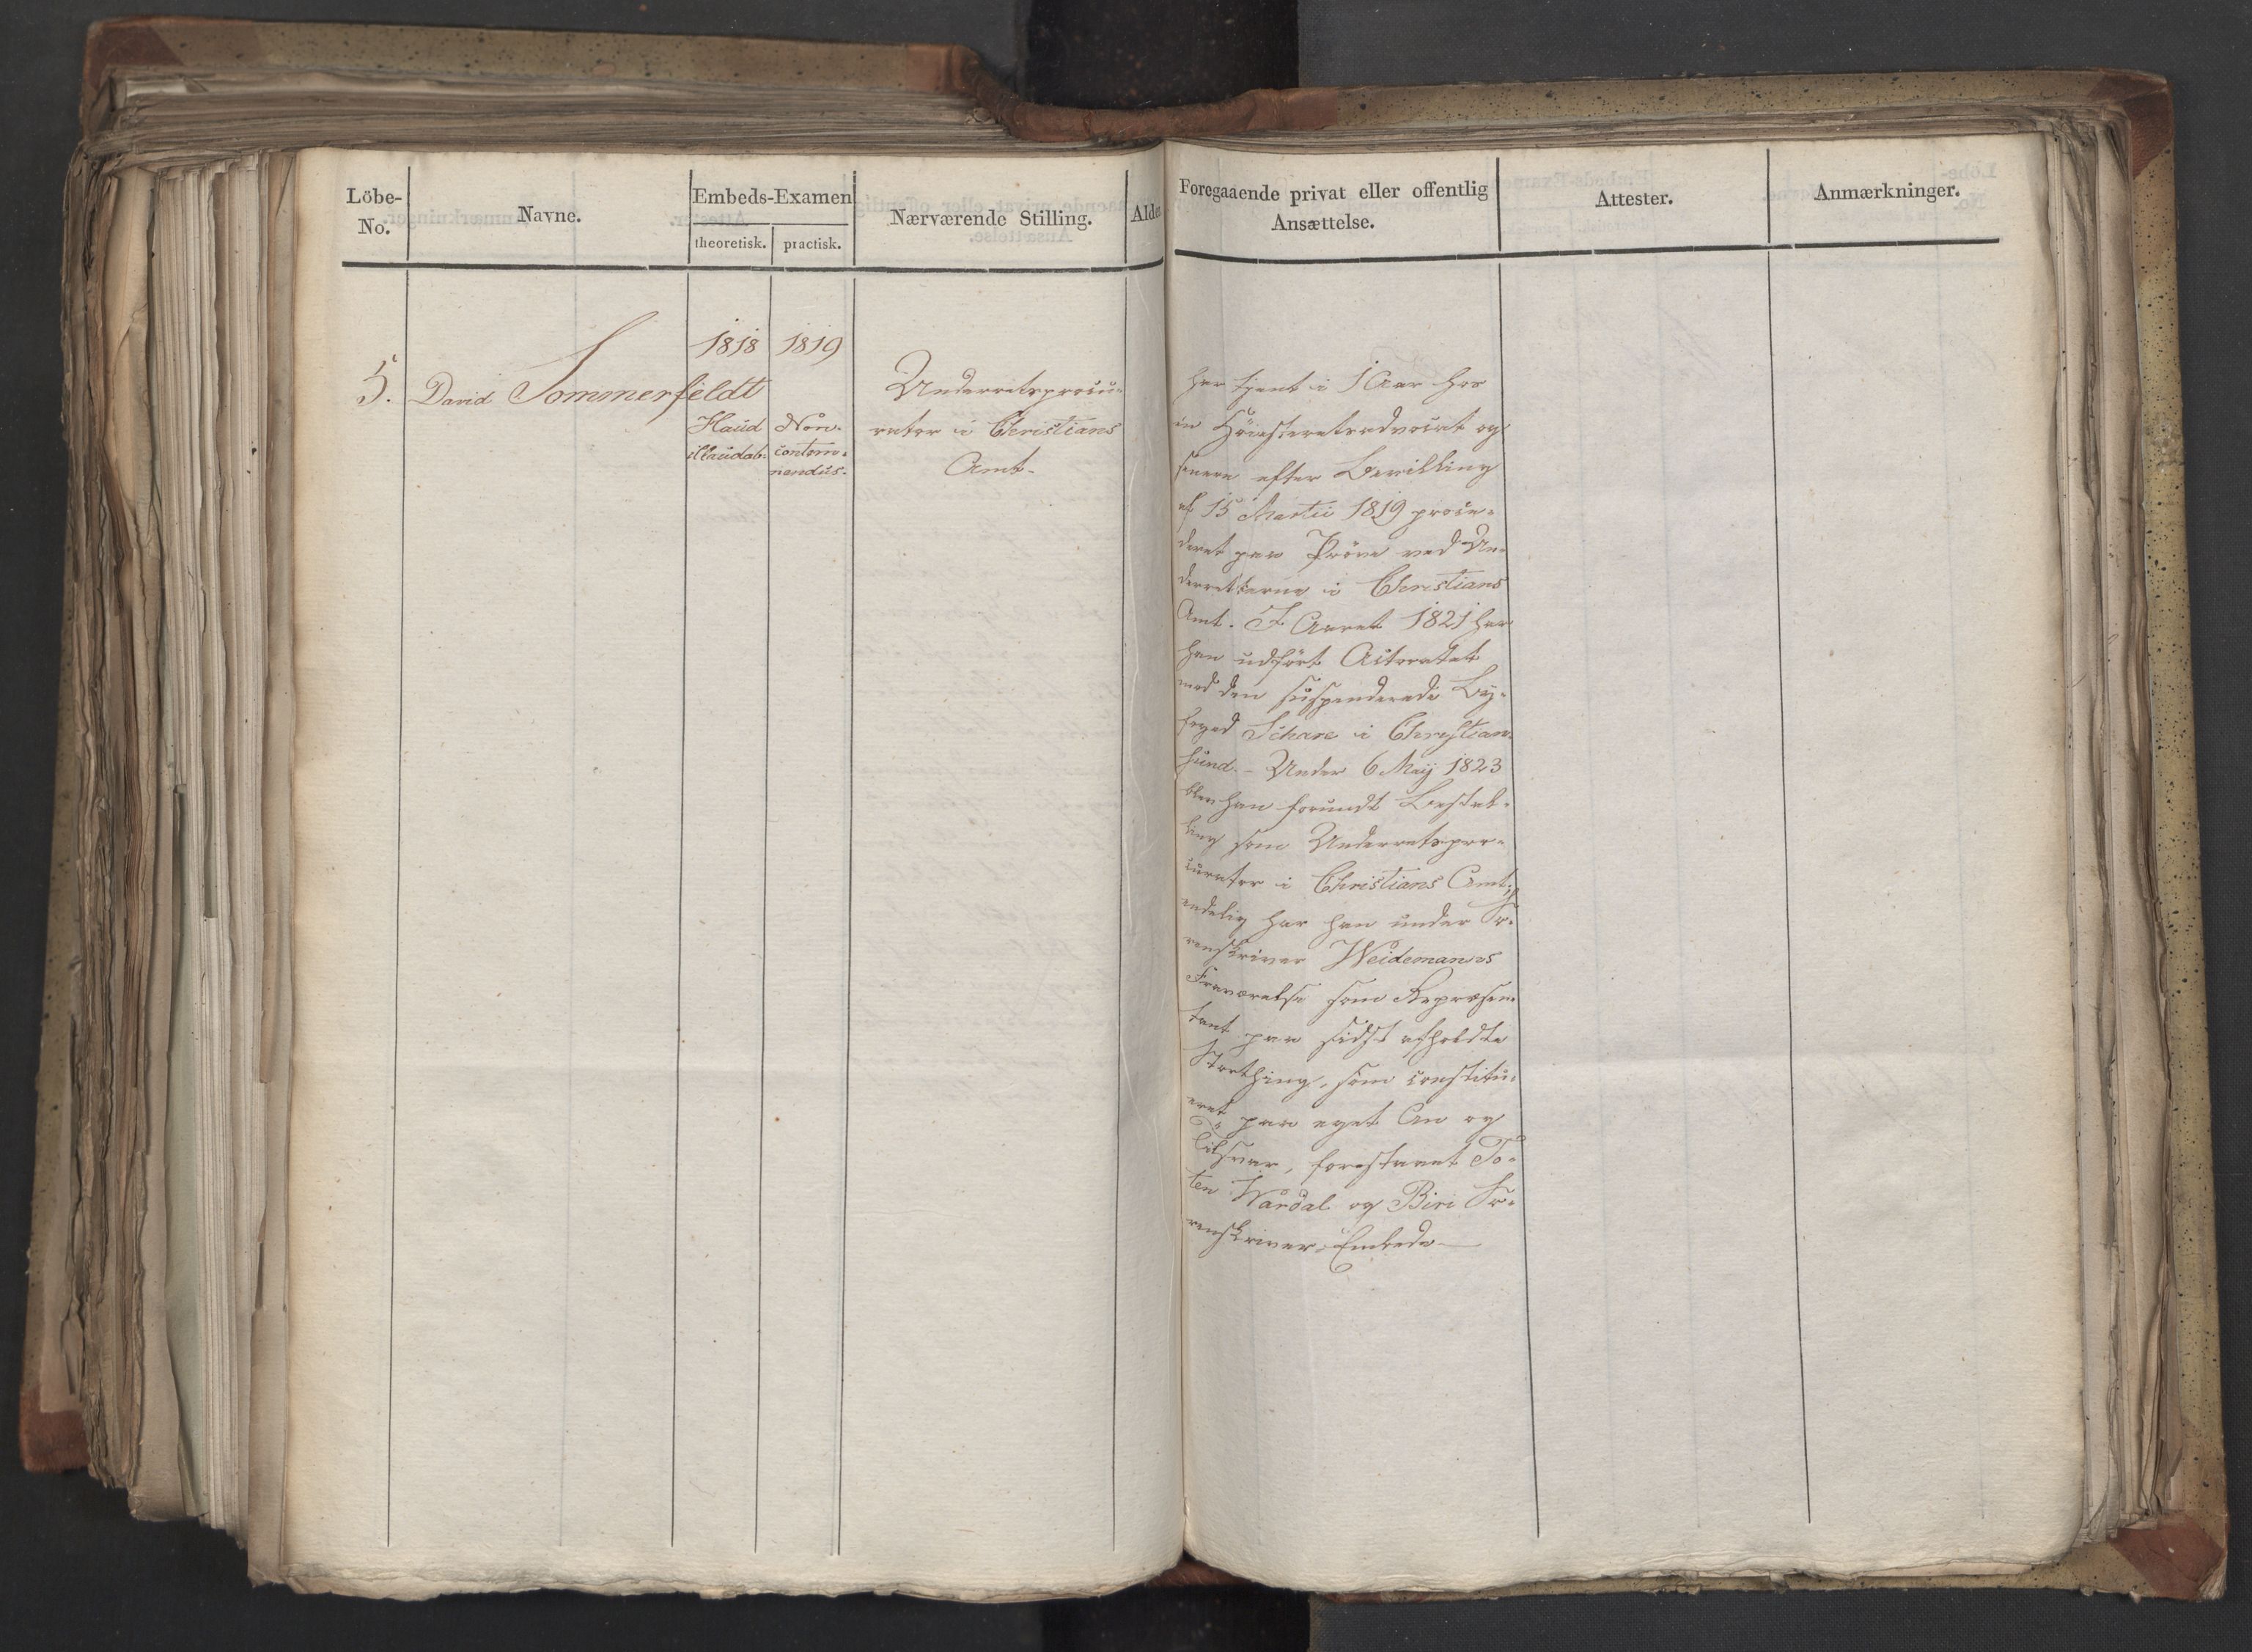 Löbe-
No.
Navne.
Embeds-Examen
theoretisk.
practisk.
Nærværende Stilling.
Alder
Foregaaende privat eller offentlig
Ansættelse.
Attester.
Anmærkninger.
5.
David Sommerfeldt
1818
Haud
illaudab:
1819
Non-
contem-
nendus.
Underretsprocu-
rator i Christians
Amt.
har tjent i 1 Aar hos
en Höiesteretsadvocat og
senere efter Bevilling
af 15 Martii 1819 proce-
deret paa Pröve ved Un-
derretterne i Christians
Amt. I Aaret 1821 har
han udfört Actoratet
mod den suspenderede By-
foged Schare i Christian-
sund. - Under 6 Maij 1823
blev han forundt Bestal-
ling som Underretspro-
curator i Christians Amt;
endelig har han under So-
renskriver Weidemanns
Fraværelse som Repræsen-
tant paa sidst afholdte
Storthing, som constitu-
eret paa eget An og
Tilsvar, forestaaet To-
ten Wardal og Biri So-
renskriver-Embede